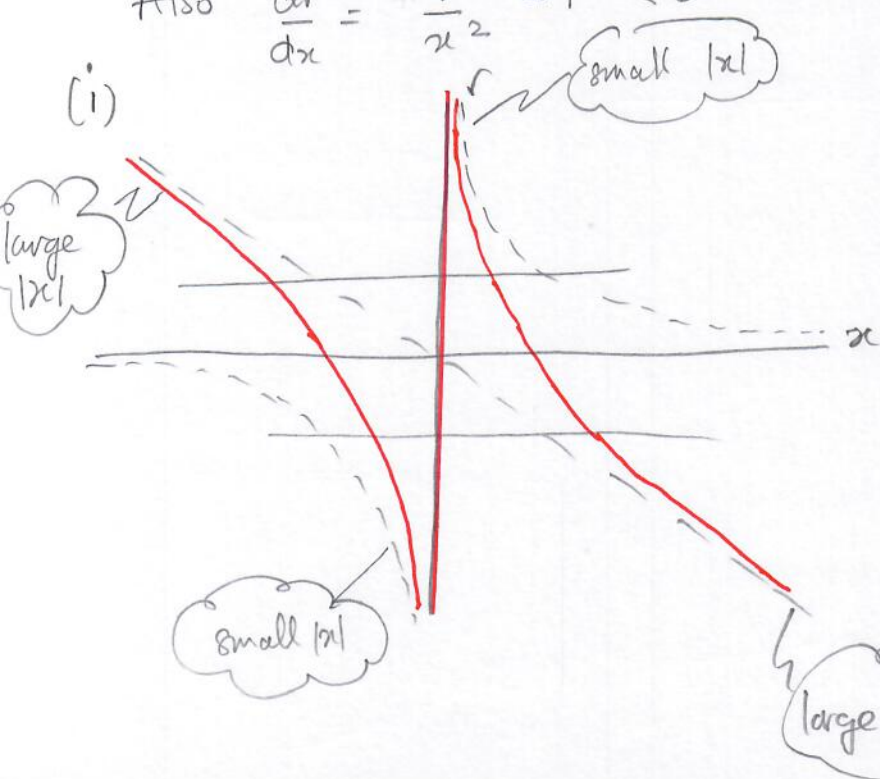 Also
dx = x²
(i)
small |x|
large
|x|
x
small |x|
large